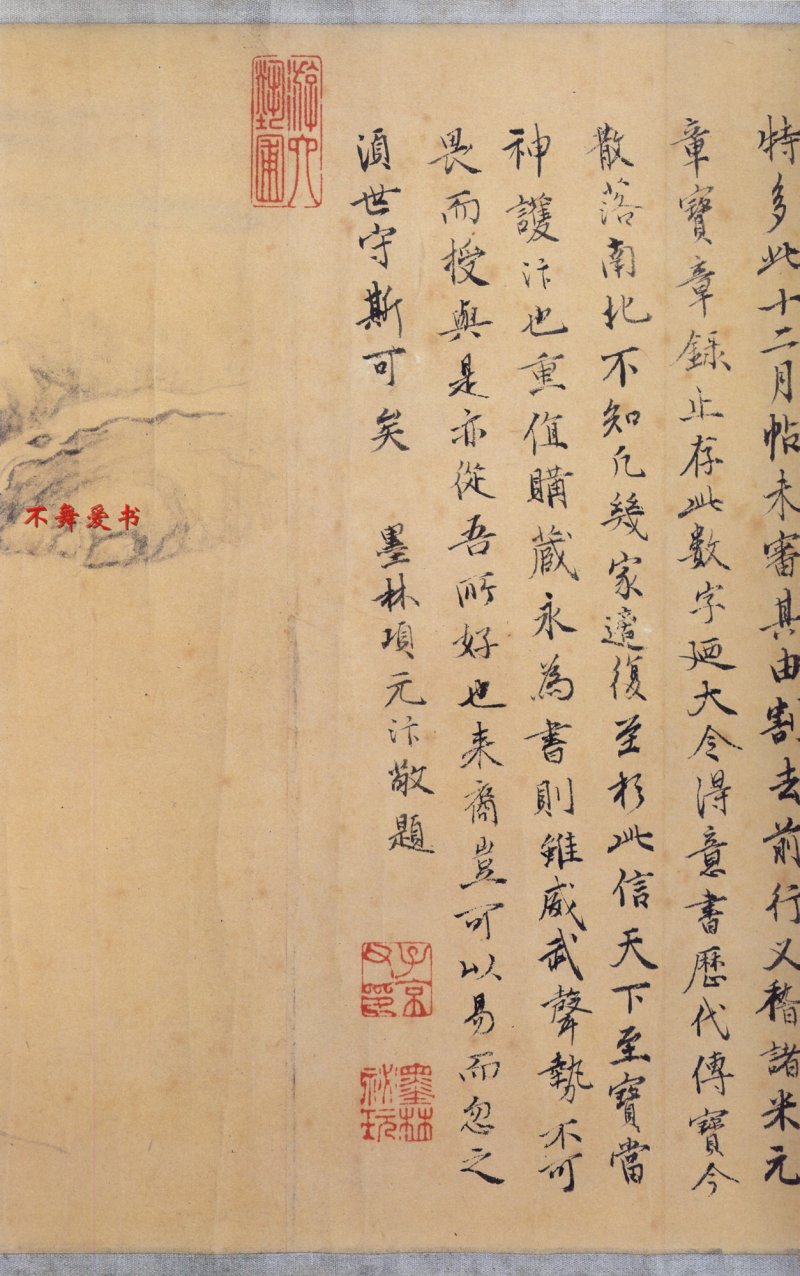 特多此十二月帖未審其由割去前行又稽諸米元
章寶章錄止存此數字廼大令得意書歷代傳寶今
散落南北不知凡幾家遑復至於此信天下至寶當
神護汴也重值購藏永為書則雖威武聲勢不可
畏而授與是亦從吾所好也来裔豈可以易而忽之
湏世守斯可矣 墨林項元汴敬題
子京父印
墨林祕玩
游六藝圃
不舞爱书